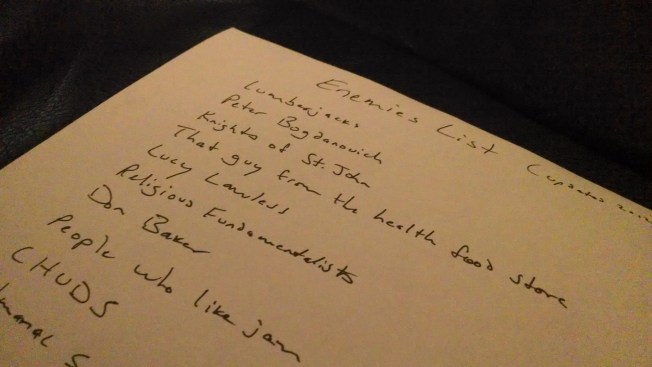 Enemies List (updated
Lumberjacks
Peter Bogdanovich
Knights of St. John
That guy from the health food store
Lucy Lawless
Religious Fundamentalists
Don Baker
People who like jam
CHUDS